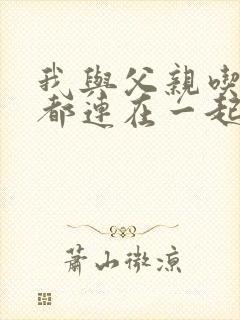 我與父親喫
都連在一起
蕭山微涼